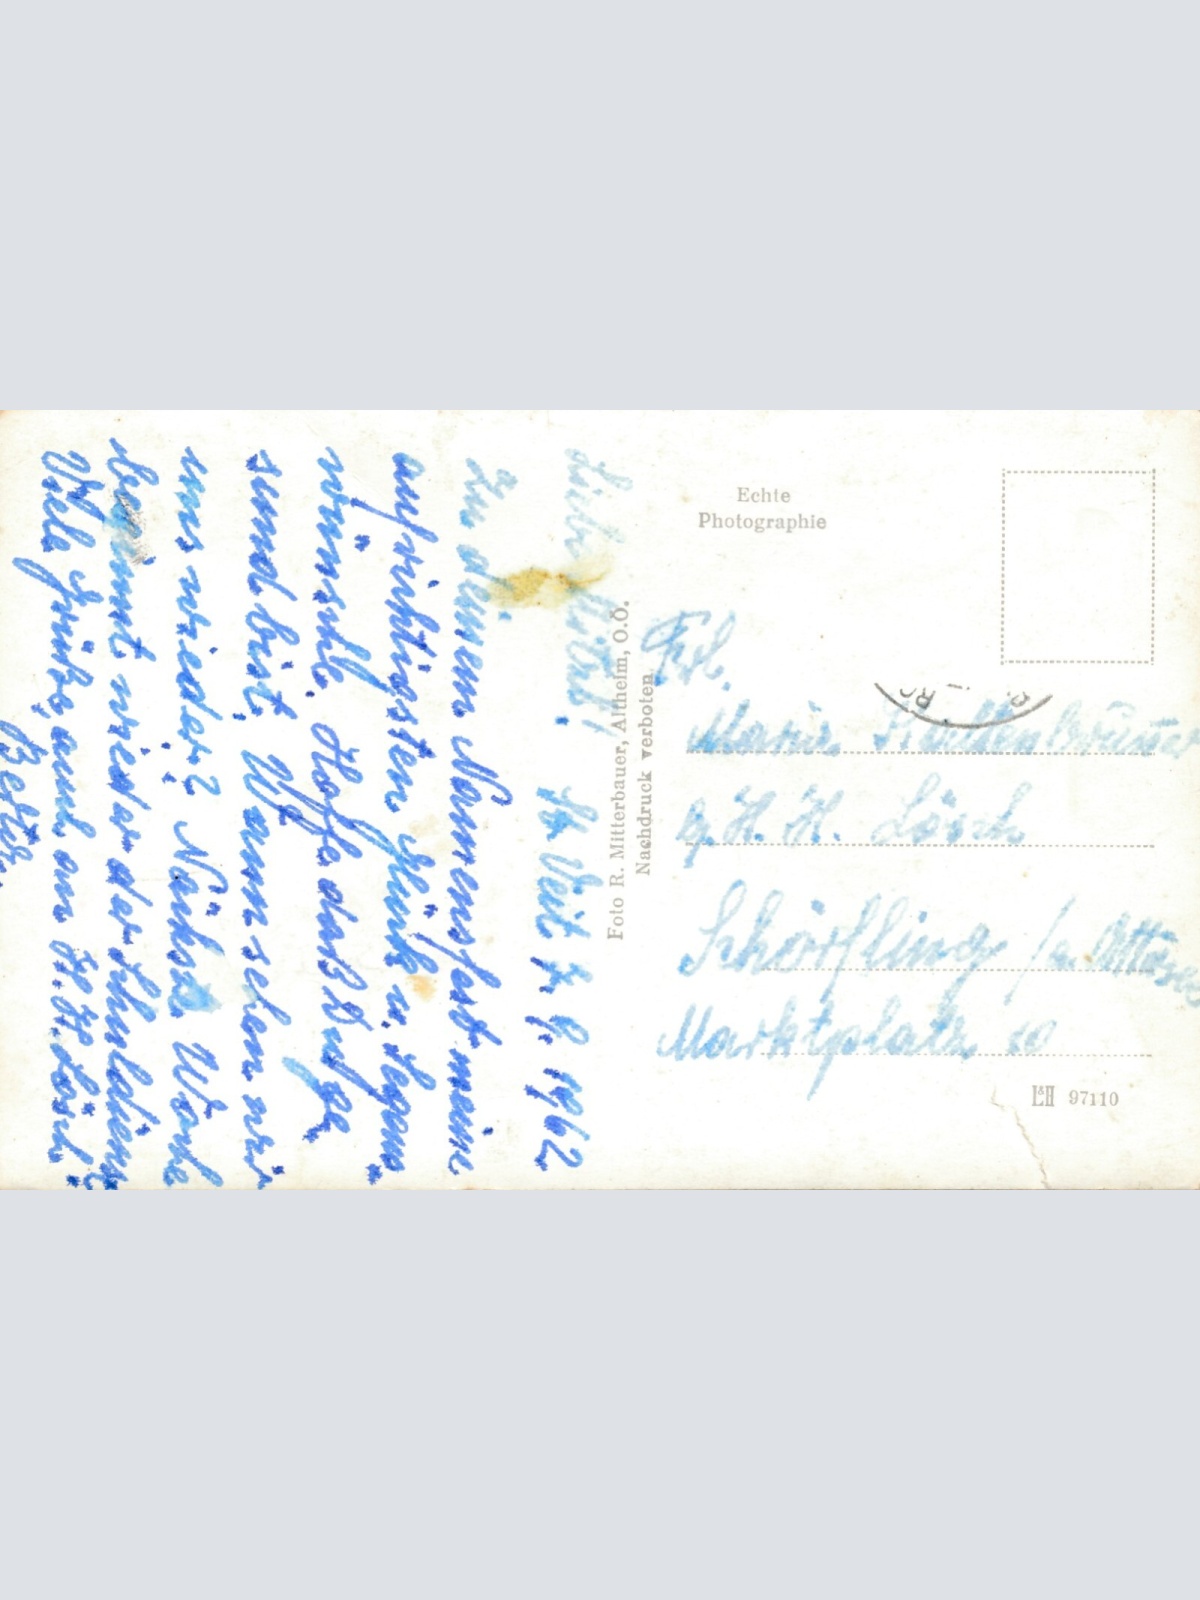 St. Veit 7. 9. 1962
Zu deinem Namensfest meine
aufrichtigsten Glück u. Segens
wünsche. Hoffe daß Du ge
sund bist. Wann sehen wir
uns wieder? Nächste Woche
beginnt wieder der Schuldienst
Viele Grüße, auch an H. H. Lösch
Echte
Photographie
Foto R. Mitterbauer, Altheim, O.Ö.
Nachdruck verboten.
Frl.
Maria
H. H. Lösch
Schörfling / a. Attersee
Marktplatz 10
L&H 97110